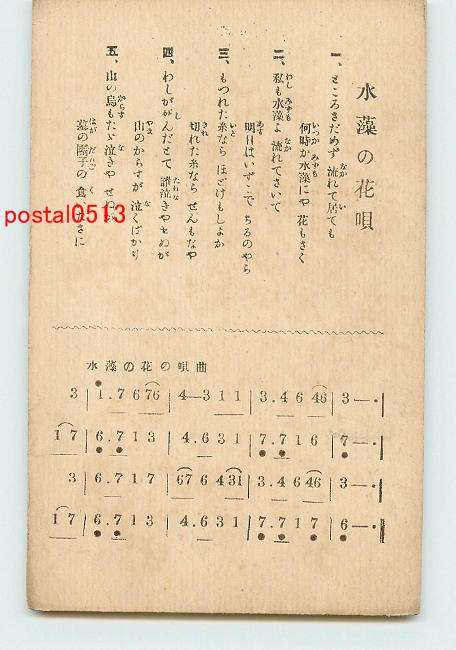 水藻の花唄
一、ところさだめず 流れて居ても
何時か水藻にや 花もさく
二、私も水藻よ 流れてさいて
明日はいずこで ちるのやら
三、もつれた糸なら ほどけもしよが
切れた糸なら せんもなや
四、わしが しんだとて 誰泣きや せぬが
山のからすが 泣くばかり
五、山の烏もたゞ泣きや せぬ
墓の團子の 食たさに
postal0513
水藻の花の唄曲
3 | 1.7 6 76 | 4—3 1 1 | 3.4 6 46 | 3—・|
1 7 | 6.7 1 3 | 4.6 3 1 | 7.7 1 6 | 7—・|
3 | 6.7 1 7 | 67 6 431 | 3.4 6 46 | 3—・|
1 7 | 6.7 1 3 | 4.6 3 1 | 7.7 1 7 | 6—・|